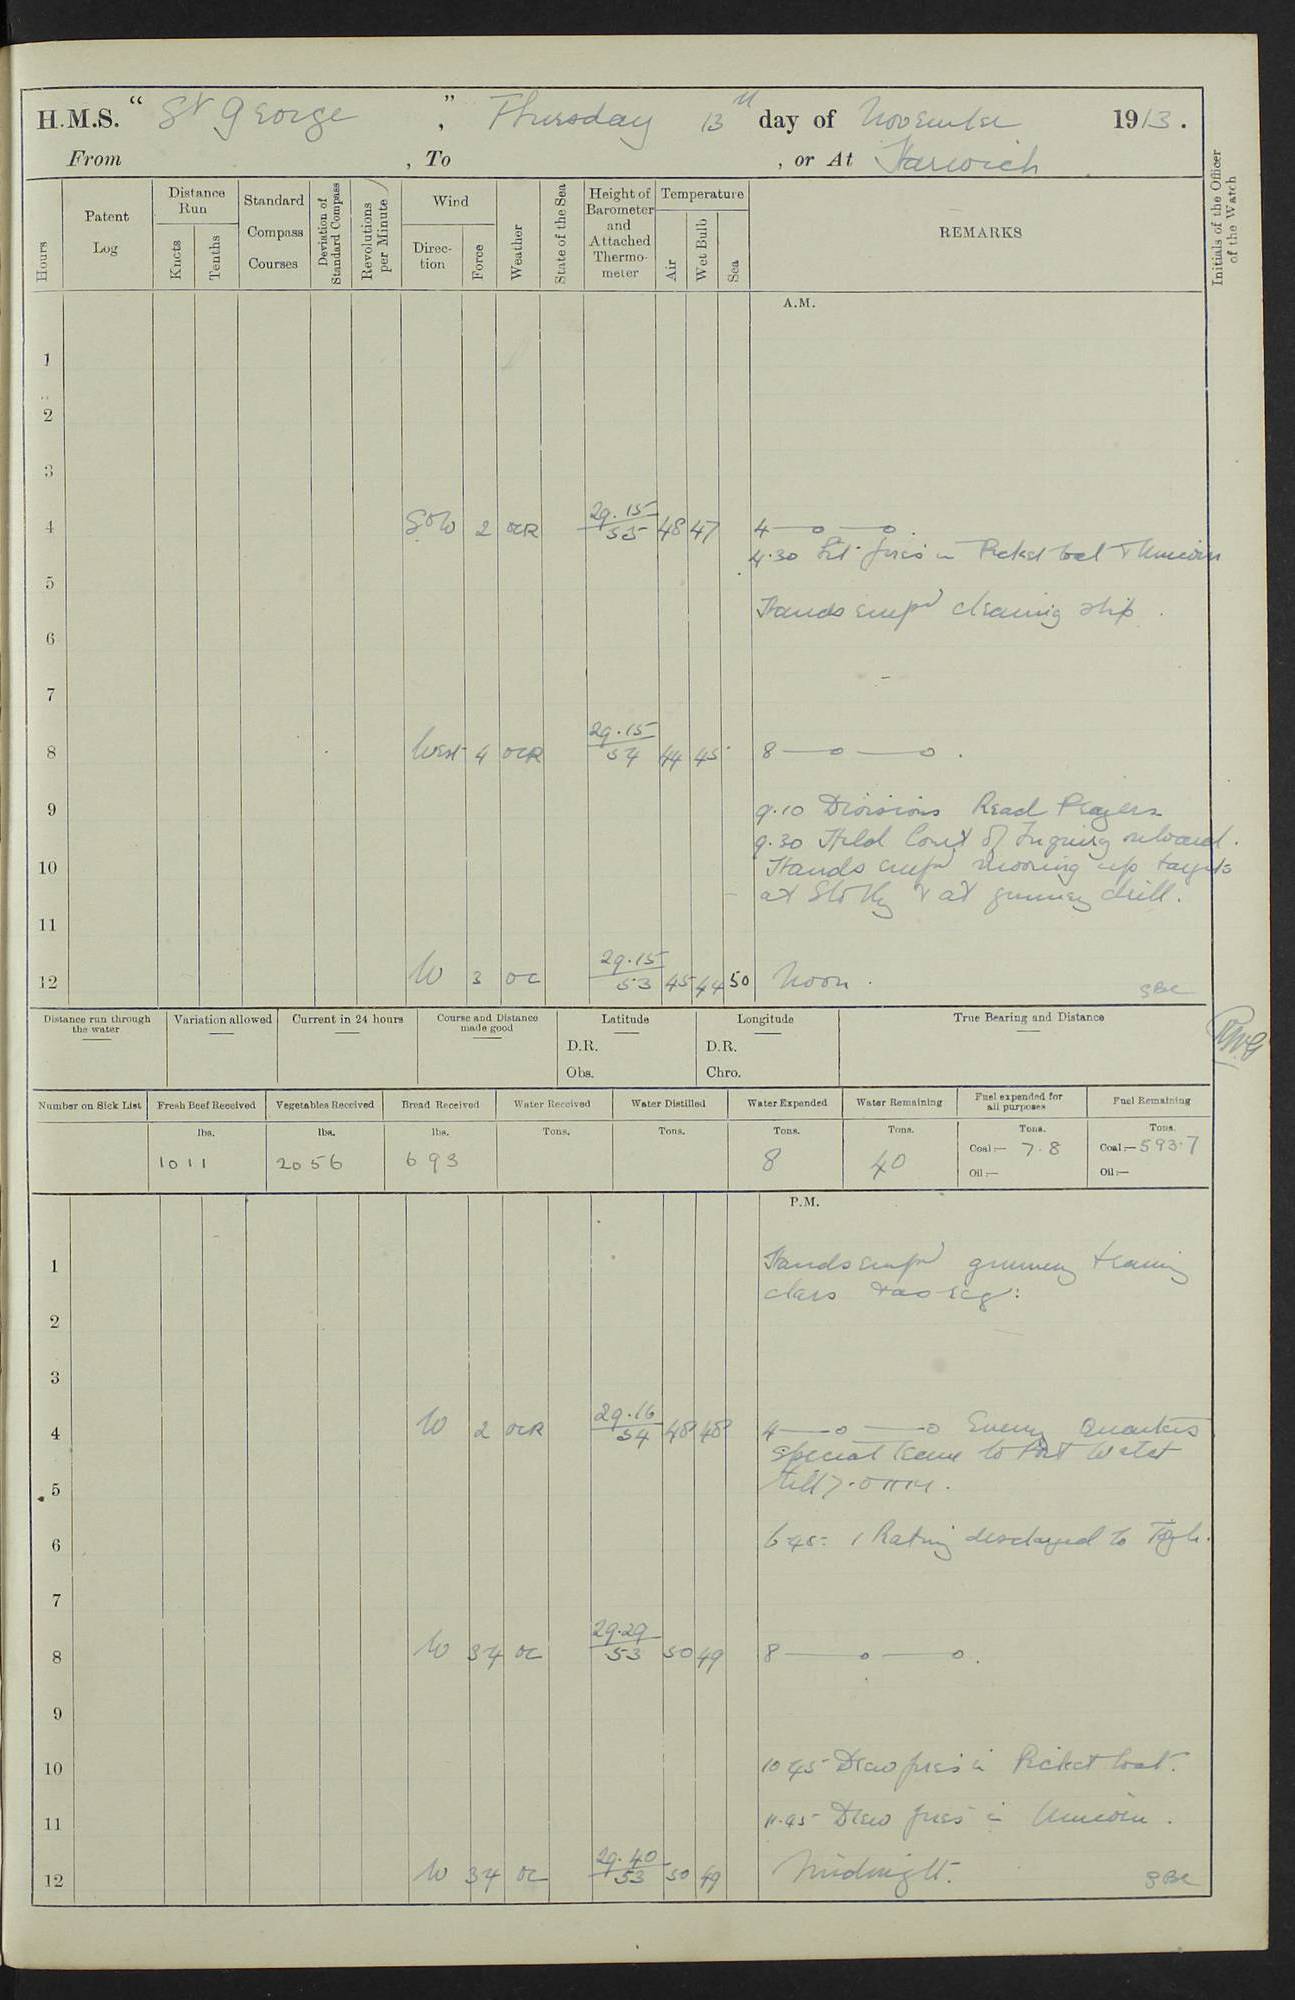 H.M.S. " St George ", Thursday 13th day of November 1913.
From , To , or At Harwich
Hours
Patent Log
Distance Run
Knots
Tenths
Standard Compass Courses
Deviation of Standard Compass
Revolutions per Minute
Wind
Direction
Force
Weather
State of the Sea
Height of Barometer and Attached Thermometer
Temperature
Air
Wet Bulb
Sea
REMARKS
Initials of the Officer of the Watch
A.M.
1
2
3
4 SW 2 OCR 29.15 55 48 47 4 —o—o
4.30 Lit fires in Picket boat & Unicorn
5
Hands emp'd cleaning ship.
6
7
8 West 4 OCR 29.15 54 44 45 8 —o—o.
9 9.10 Divisions Read Prayers
9.30 Held Court of Inquiry onboard.
10 Hands emp'd mooring up targets
at & at gunnery drill.
11
12 W 3 OC 29.15 53 45 44 50 Noon.
Distance run through the water
Variation allowed
Current in 24 hours
Course and Distance made good
Latitude
D.R.
Obs.
Longitude
D.R.
Chro.
True Bearing and Distance
Number on Sick List
Fresh Beef Received
Vegetables Received
Bread Received
Water Received
Water Distilled
Water Expended
Water Remaining
Fuel expended for all purposes
Fuel Remaining
lbs. lbs. lbs. Tons. Tons. Tons. Tons. Tons. Tons.
1011 2056 693 8 40 Coal:— 7.8 Coal:— 593.7
Oil:— Oil:—
P.M.
1 Hands emp'd gunnery training
class
2
3
4 W 2 OCR 29.16 54 48 48 4 —o—o Evening Quarters
Special leave to Port Watch
till 7.0
5
6 6.45 1 Rating discharged to
7
8 W 34 OC 29.29 53 50 49 8 —o—o.
9
10 10.45 Drew fires in Picket boat.
11 11.45 Drew fires in Unicorn.
12 W 34 OC 29.40 53 50 49 Midnight.